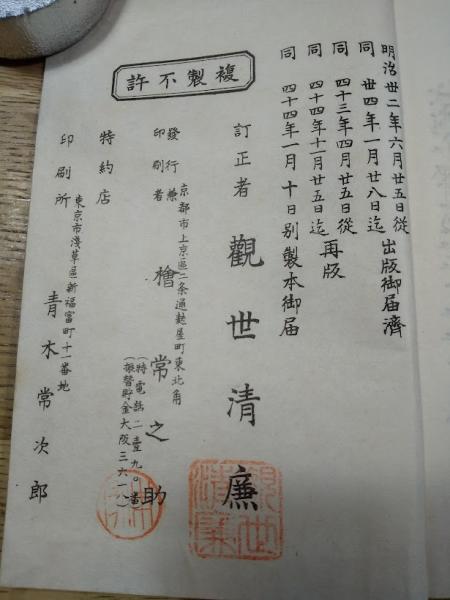 明治卅二年六月廿五日從
同 卅四年一月廿八日迄 出版御届濟
同 四十三年四月廿五日從
同 四十四年十一月廿五日迄 再版
同 四十四年一月十日別製本御届
複製不許
訂正者 觀世清廉
發行兼印刷者
京都市上京區二条通麩屋町東北角
檜常之助
(特電話二壹九〇番)
(振替貯金大阪三六一八)
特約店
印刷所
東京市淺草區新福富町十一番地
青木常次郎